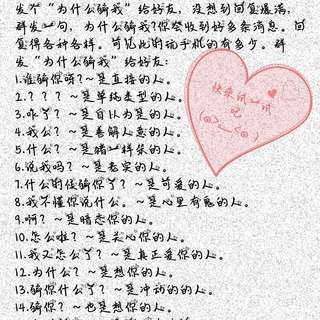 发个“为什么骗我”给好友，没想到回复爆满，
群发一句，为什么骗我？你会收到好多条消息。回
复得各种各样。可见此刻玩手机的有多少。群
发“为什么骗我”给好友：
1.谁骗你呀？~是直接的人。
2.？？？~是单纯类型的人。
3.咋了？~是自以为是的人。
4.我么？~是善解人意的人。
5.什么？~是猪一样条的人。
6.说我吗？~是老实的人。
7.什么时候骗你了？~是可爱的人。
8.我不懂你说什么。~是心里有鬼的人。
9.啊？~是暗恋你的人。
10.怎么啦？~是关心你的人。
11.我又怎么了？~是真正爱你的人。
12.为什么？~是想你的人。
13.骗你什么了？~是冲动的的人。
14.骗你？~也是想你的人。
快来试一试
吧